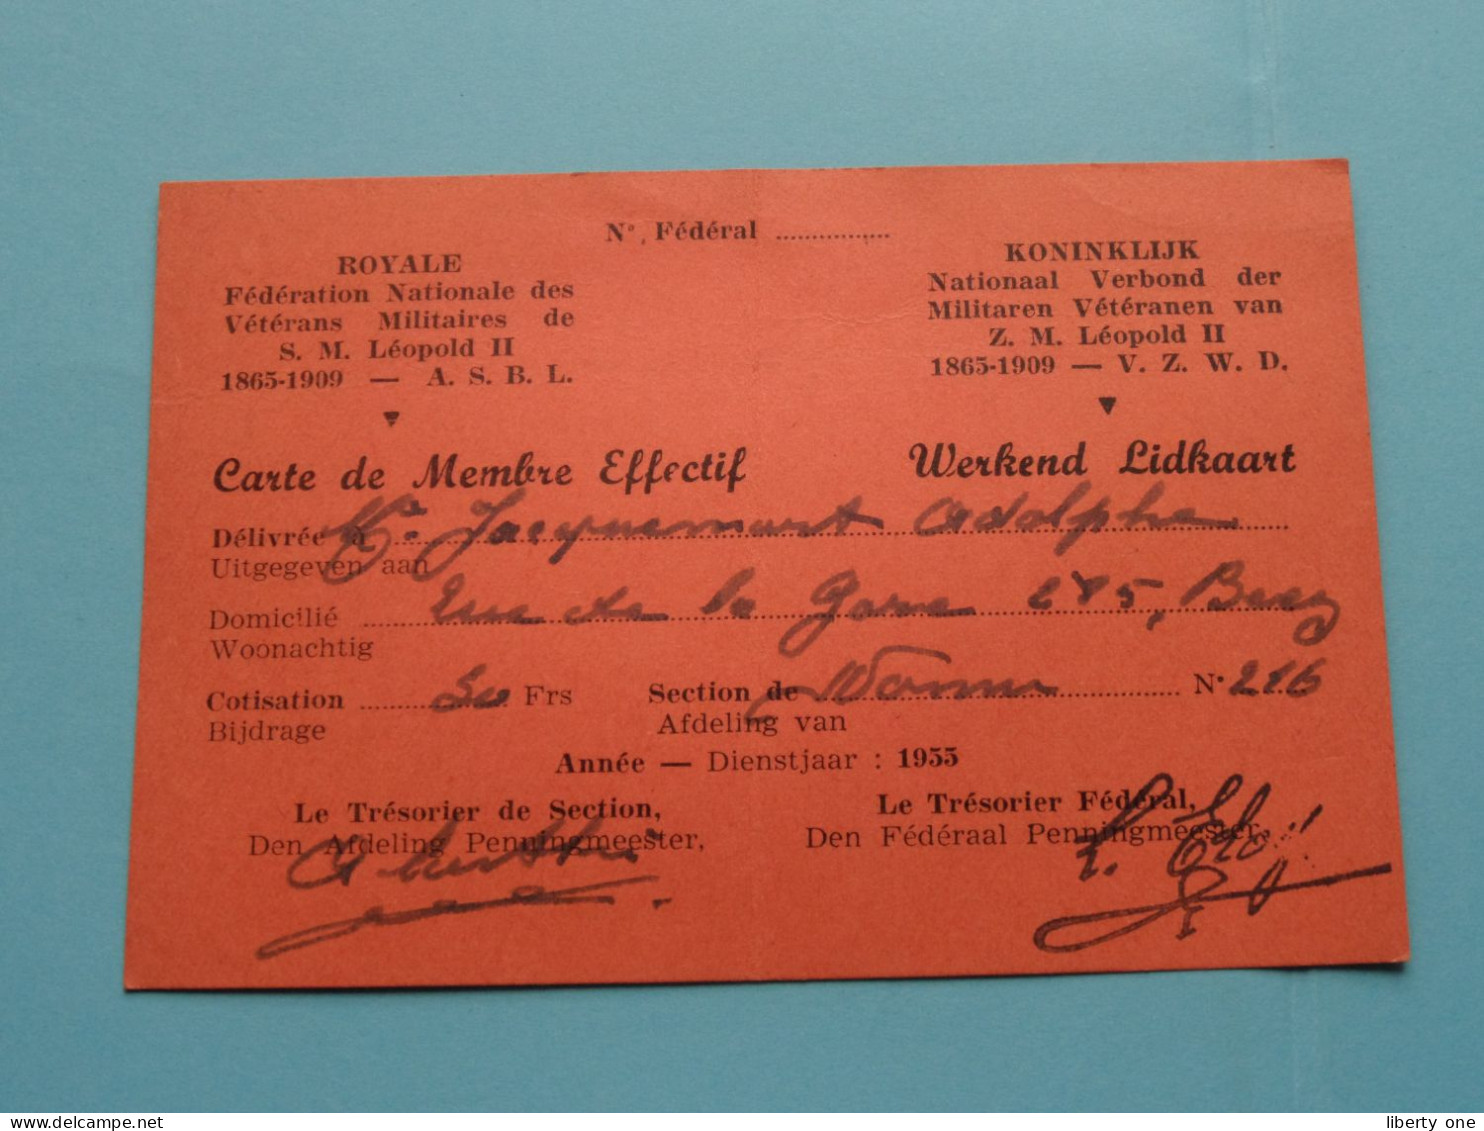 N°. Fédéral ................
ROYALE
Fédération Nationale des
Vétérans Militaires de
S. M. Léopold II
1865-1909 — A. S. B. L.
KONINKLIJK
Nationaal Verbond der
Militaren Vétéranen van
Z. M. Léopold II
1865-1909 — V. Z. W. D.
Carte de Membre Effectif
Werkend Lidkaart
Délivrée à Mr. Jacquemart Adolphe
Uitgegeven aan
Domicilié rue de la Gare 285,
Woonachtig
Cotisation Frs Section de N° 216
Bijdrage Afdeling van
Année — Dienstjaar : 1955
Le Trésorier de Section,
Den Afdeling Penningmeester,
Le Trésorier Fédéral,
Den Féderaal Penningmeester,
delcampe.net
liberty one